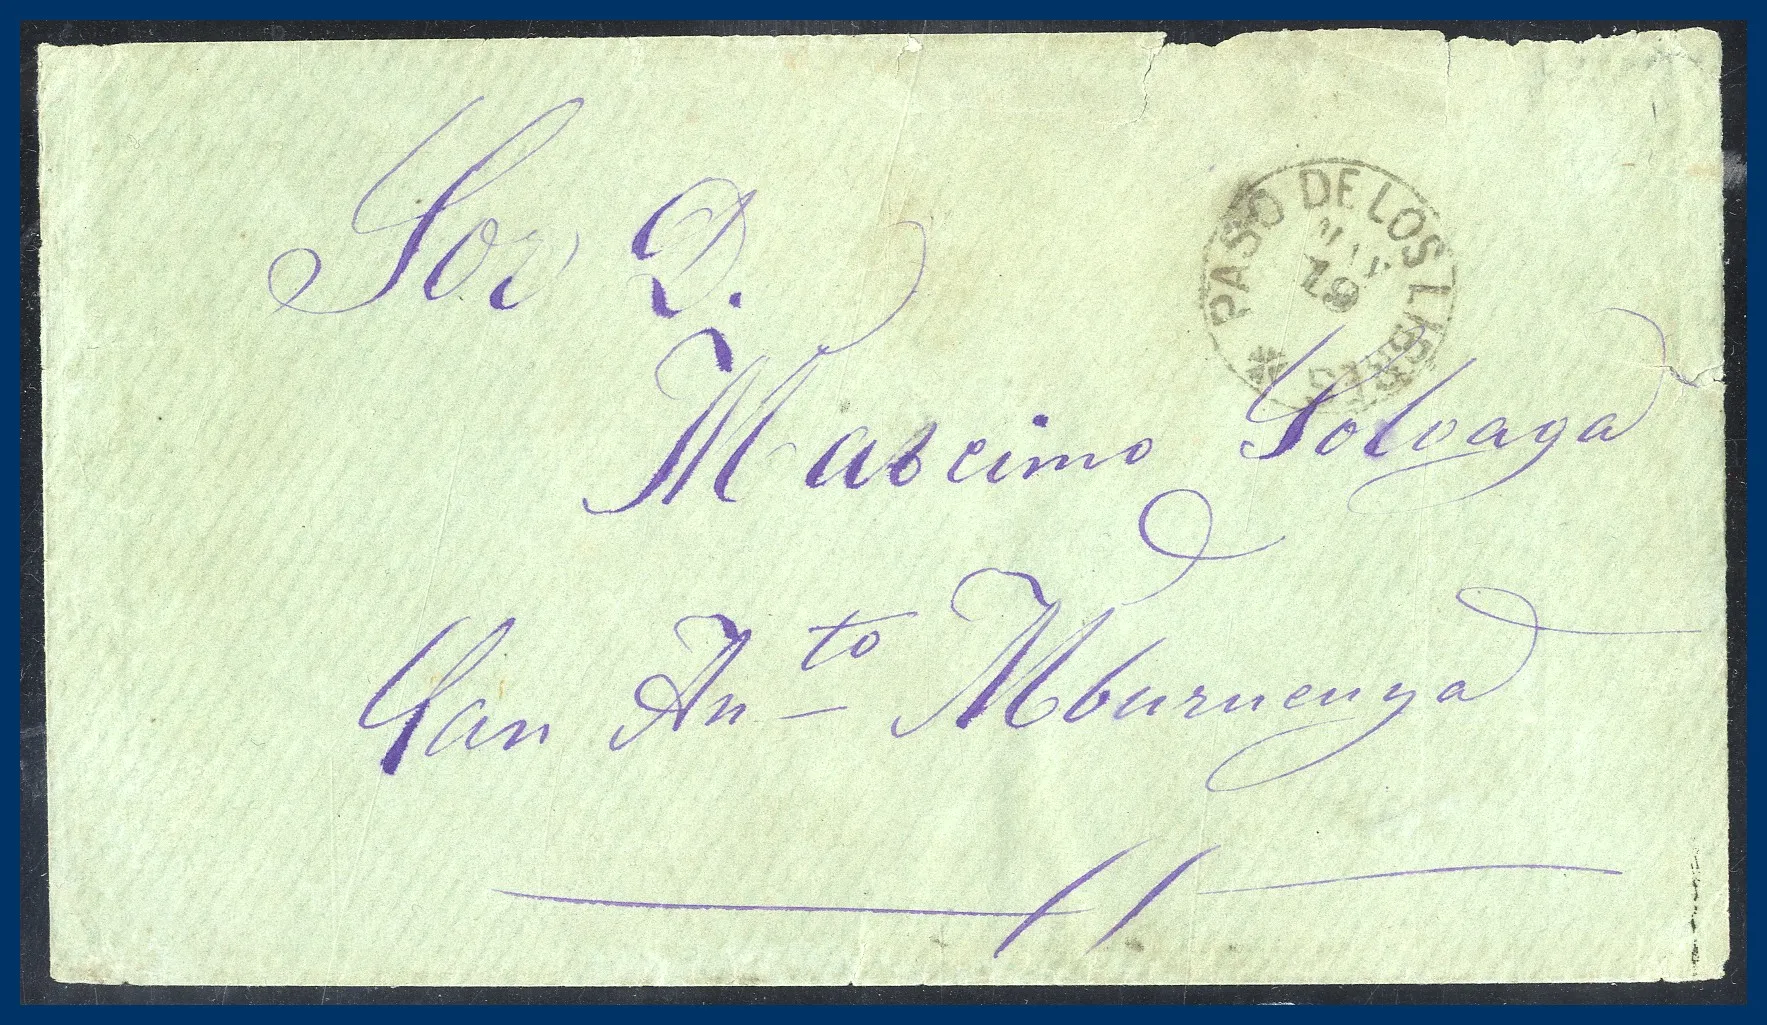 Sor D.
PASO DE LOS LIBRES
19
Mascimo Loloaga
San Anto Mburucuya